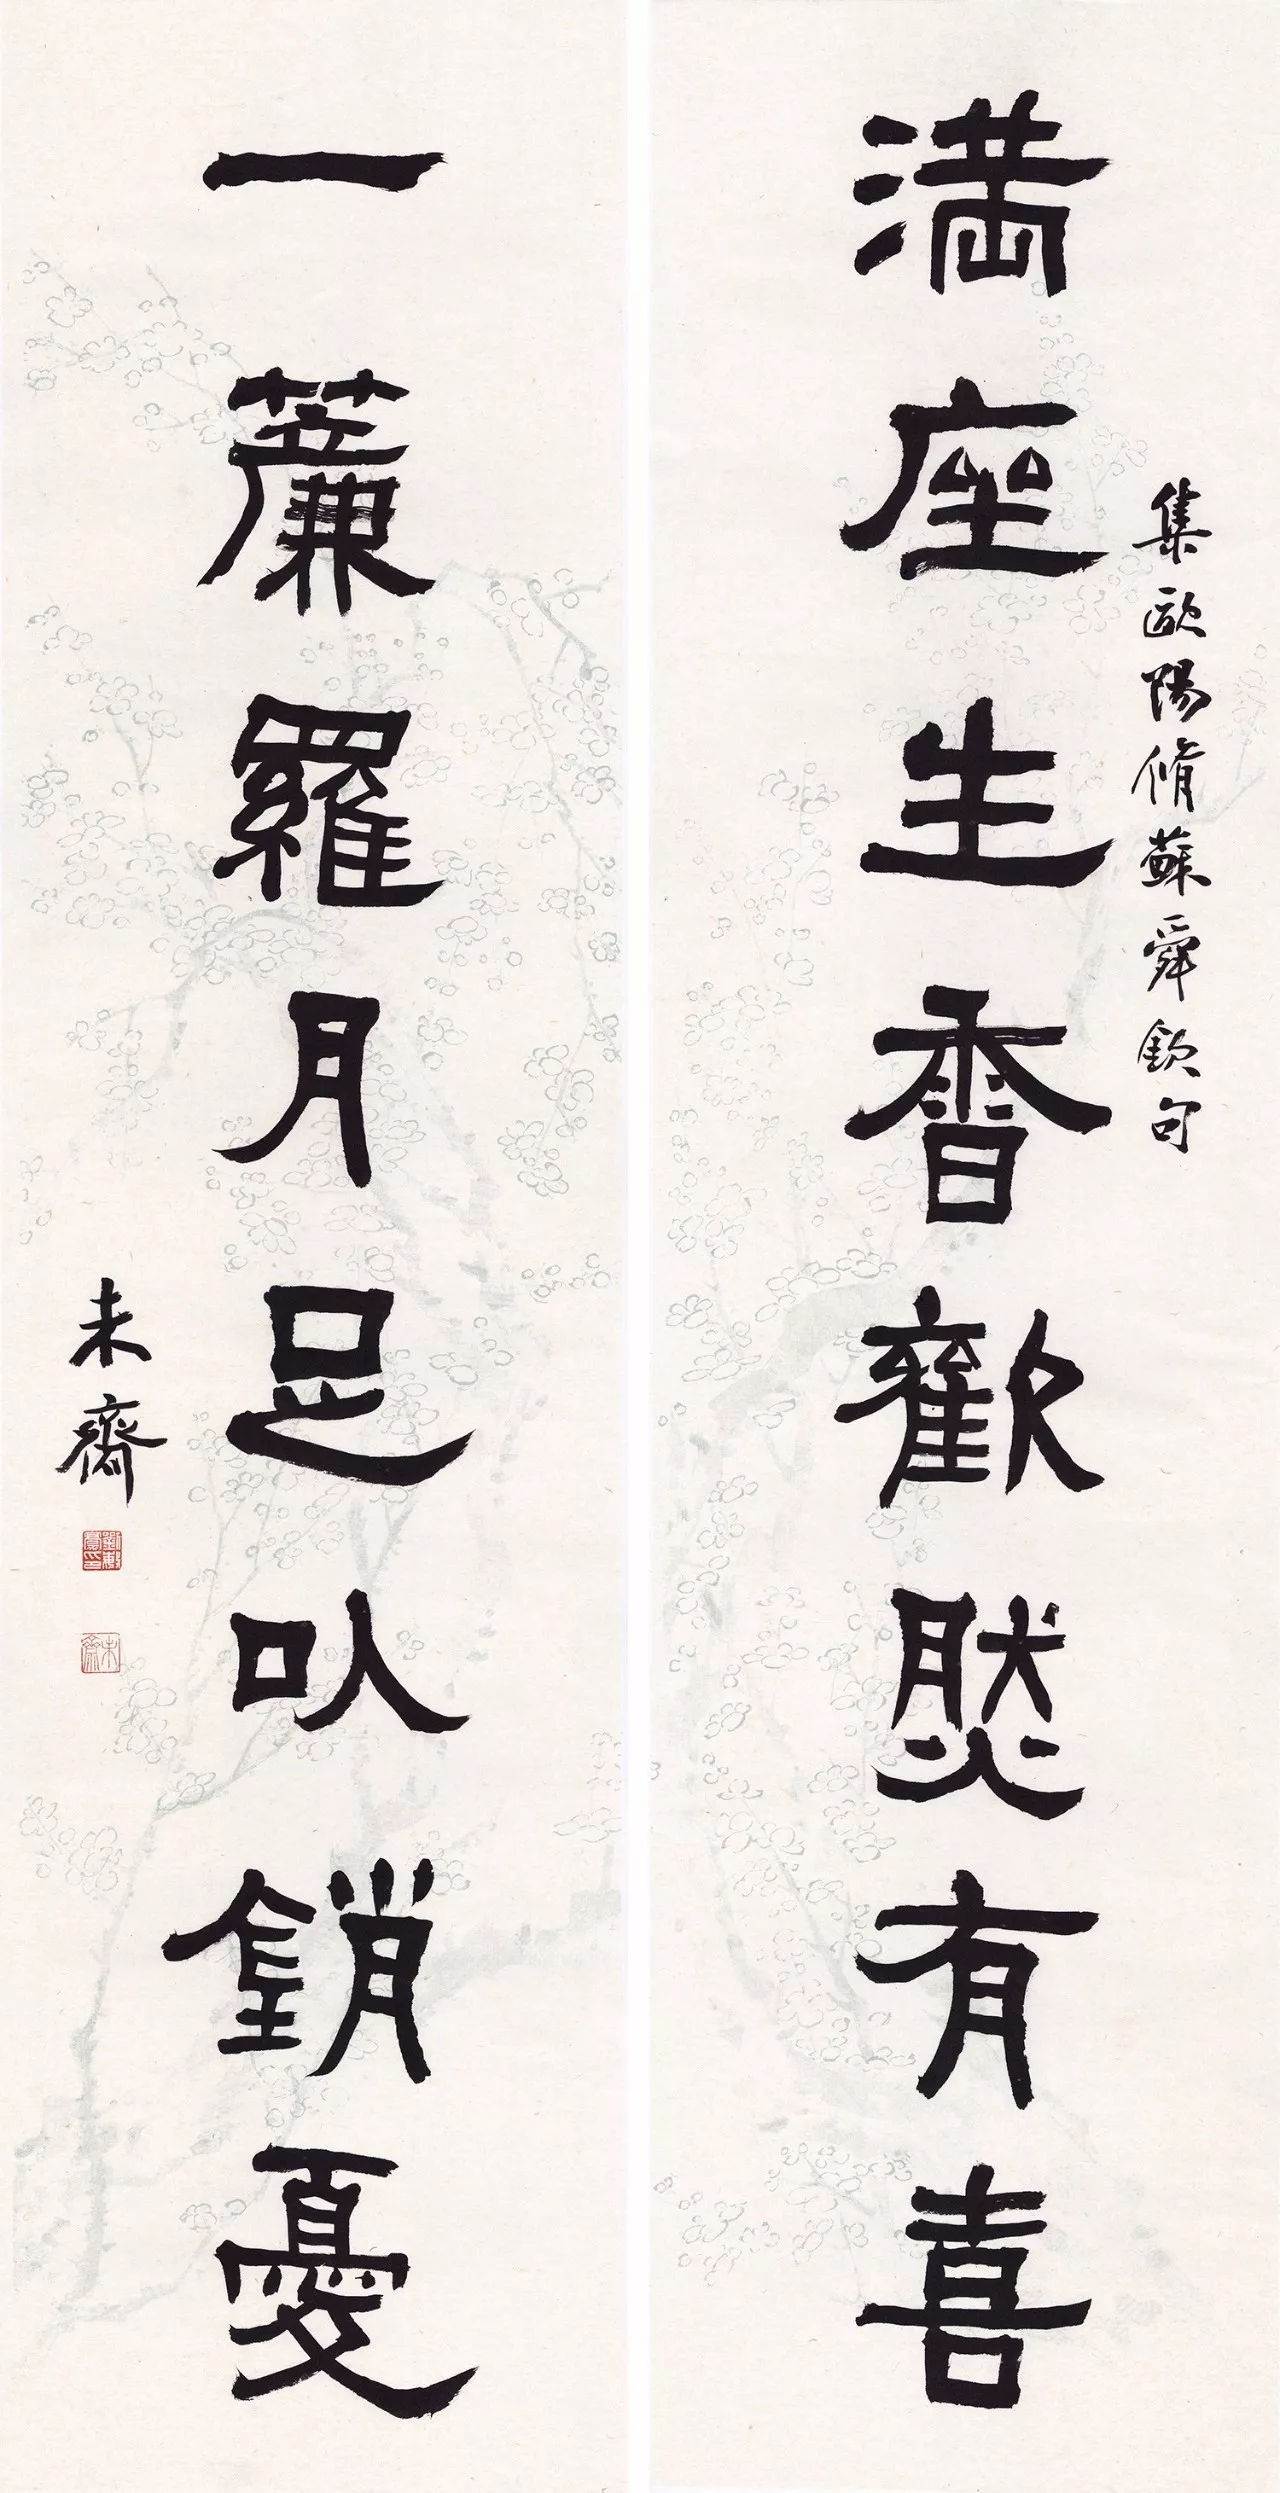 満座生香歡然有喜
集歐陽脩蘇舜欽句
一簾羅月足以銷憂
未齋
未齋